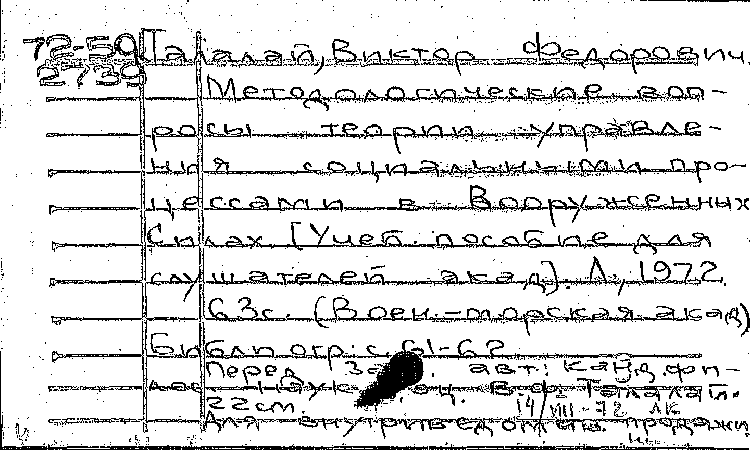 72-59 Талалай, Виктор Федорович.
2739 Методологические воп-
росы теории управле-
ния социальными про-
цессами в Вооруженных
Силах. [Учеб. пособие для
слушателей акад]. Л., 1972.
63с. (Воен.-морская акад)
Библиогр: с. 61-62
Перед авт: канд. фи-
наук, В.Ф. Талалай.
22см. 14/VIII-72 ЛК
Для внутриведомств. продажи